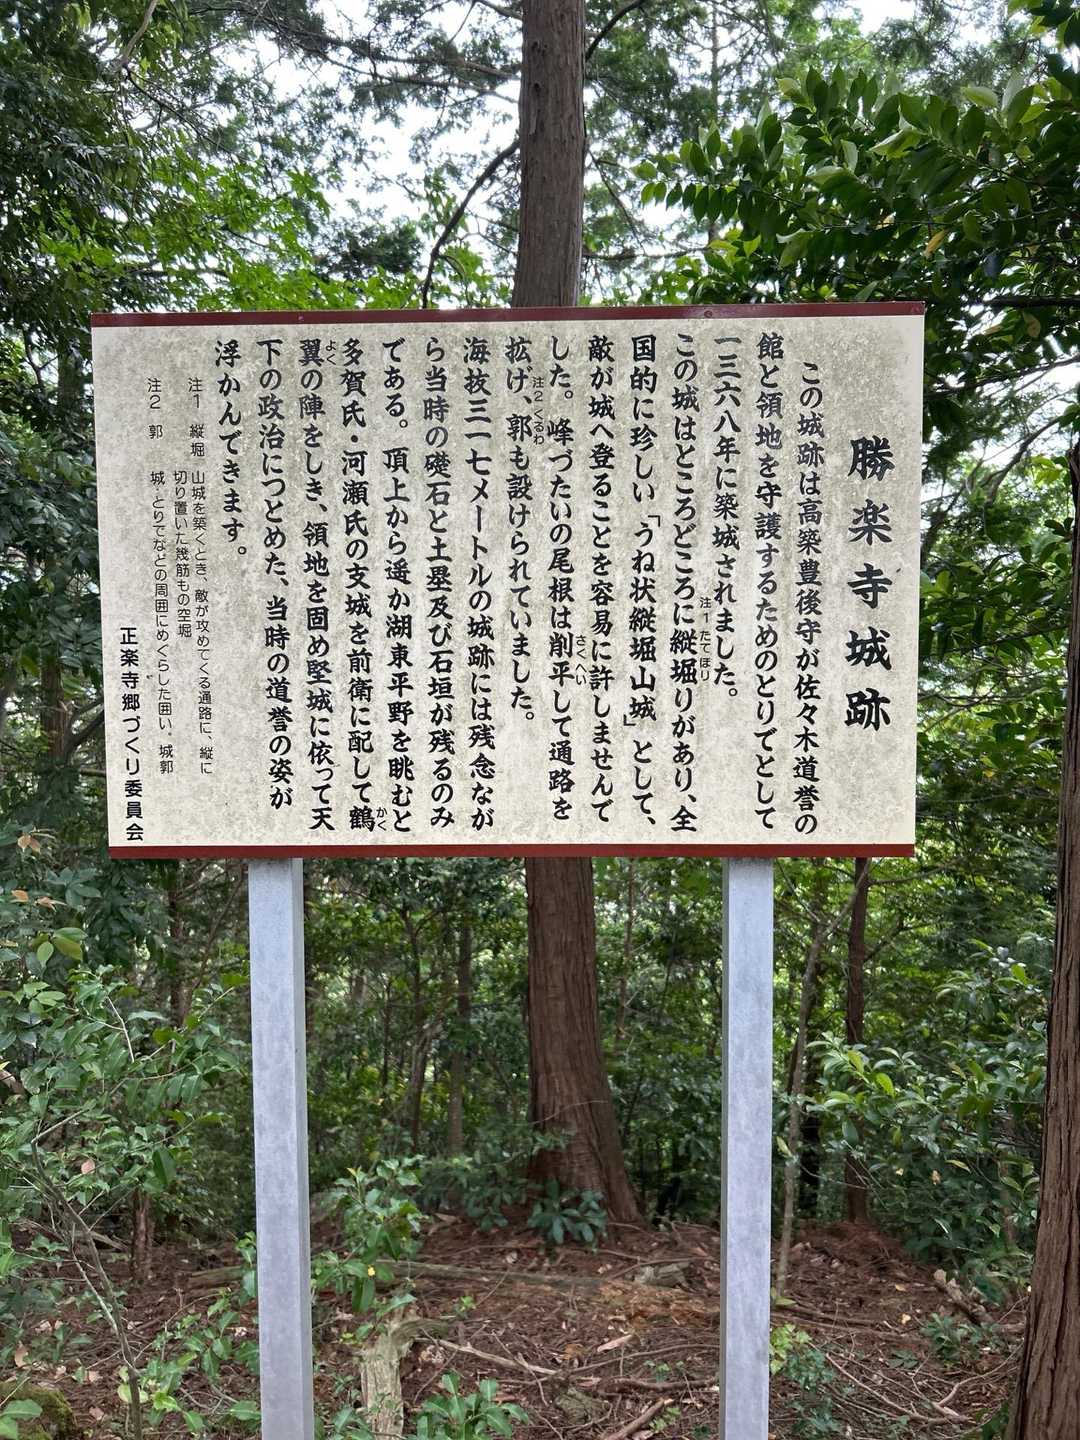 勝楽寺城跡
この城跡は高築豊後守が佐々木道誉の
館と領地を守護するためのとりでとして
一三六八年に築城されました。
この城はところどころに縦堀りがあり、全
注1 たてぼり
国的に珍しい「うね状縦堀山城」として、
敵が城へ登ることを容易に許しませんで
した。峰づたいの尾根は削平して通路を
さくへい
拡げ、郭も設けられていました。
注2 くるわ
海抜三一七メートルの城跡には残念なが
ら当時の礎石と土塁及び石垣が残るのみ
である。頂上から遥か湖東平野を眺むと
多賀氏・河瀬氏の支城を前衛に配して鶴
かく
翼の陣をしき、領地を固め堅城に依って天
よく
下の政治につとめた、当時の道誉の姿が
浮かんできます。
注1 縦堀 山城を築くとき、敵が攻めてくる通路に、縦に
切り置いた幾筋もの空堀
注2 郭 城・とりでなどの周囲にめぐらした囲い。城郭
正楽寺郷づくり委員会